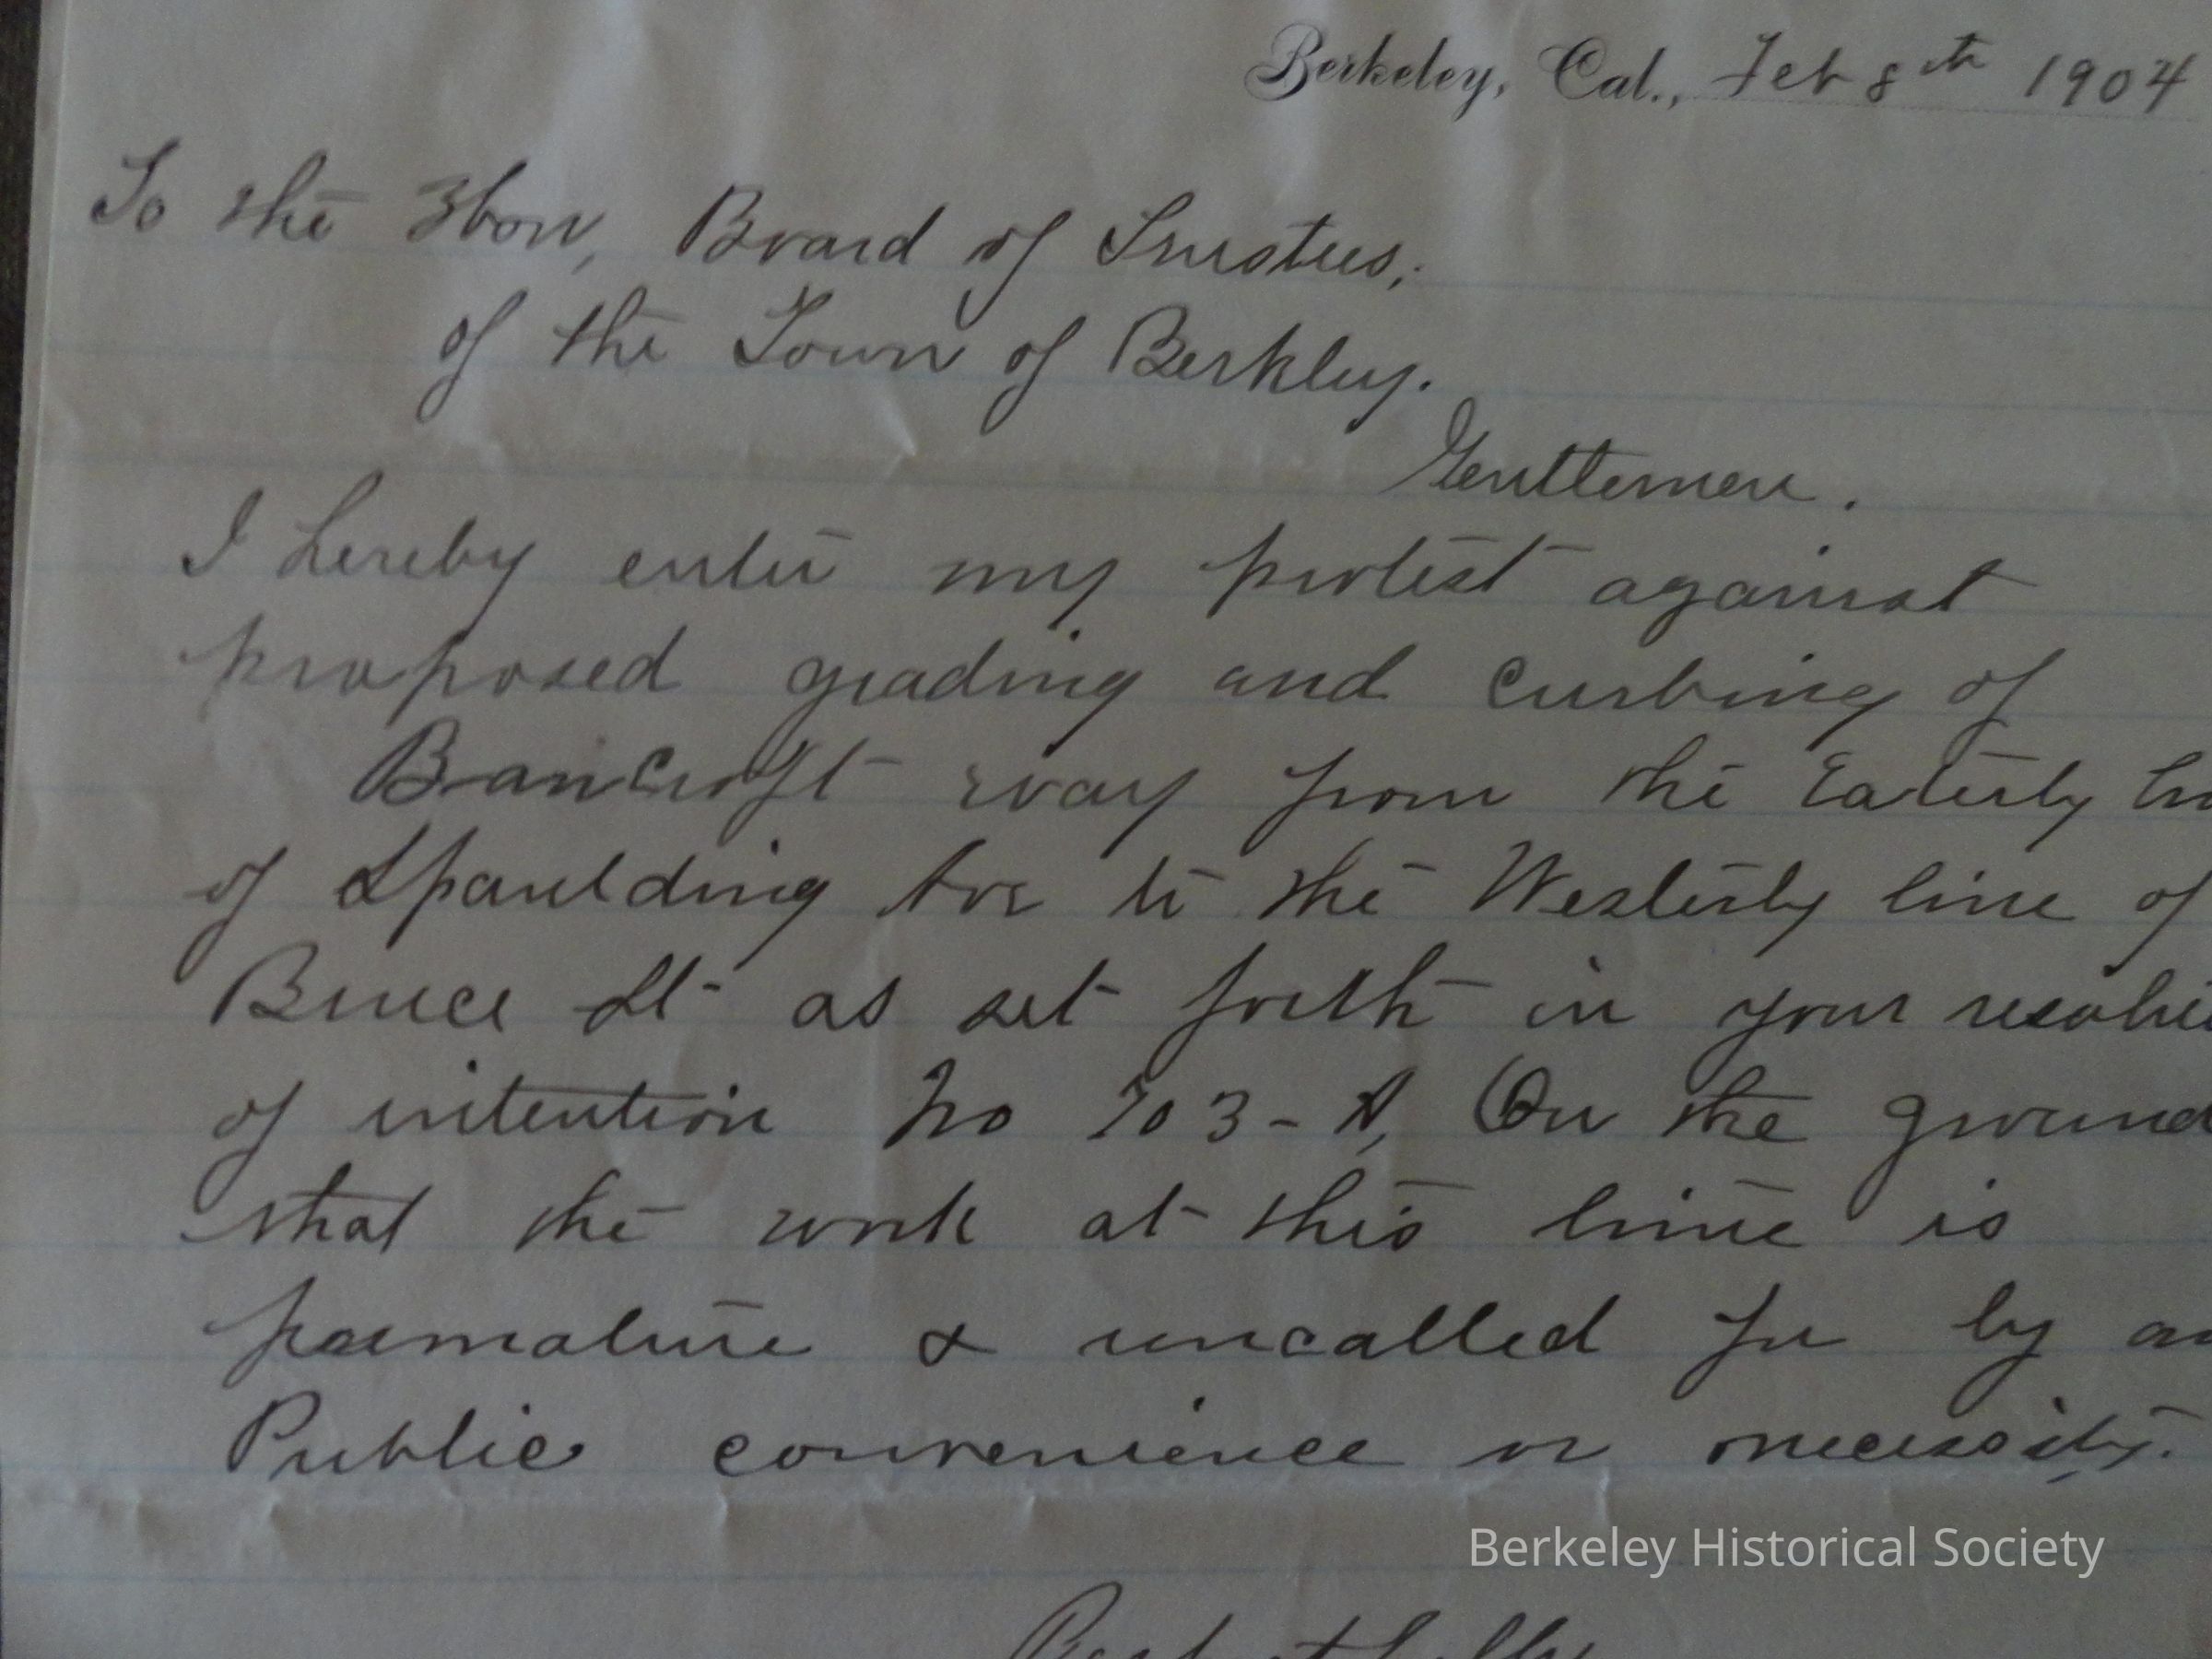 Berkeley, Cal., Feb 8th 1904
To the Hon, Board of Trustees,
of the Town of Berkley.
Gentlemen.
I hereby enter my protest against
proposed grading and curbing of
Bancroft way from the Easterly
of Spaulding Ave to the Westerly line of
Bruce St as set forth in your
of intention No 703-A, On the ground
that the work at this time is
premature & uncalled for by
Public convenience or necessity.
Berkeley Historical Society
Respectfully